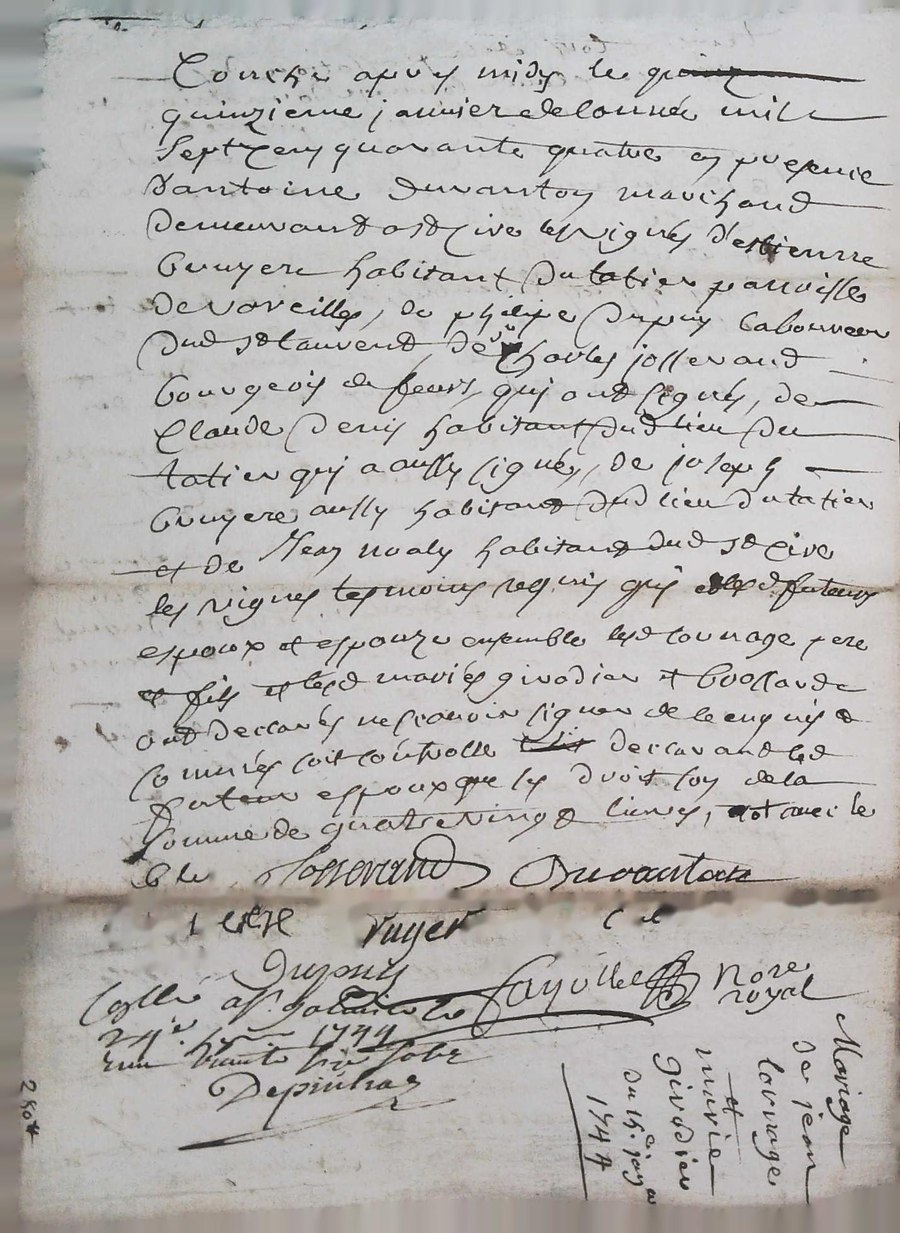 Couché apres midy le quinz
quinziéme janvier de lannée mil
sept cens quarante quatre en presence
d'antoine duranton marchand
demeurant a st cire les vignes d'estienne
bruyere habitant du tatier parroisse
de valeille, de philipe dupuy laboureur
dud st laurend, de sr charles josserand
bourgeois de feurs, qui ont signés, de
claude denis habitant dud lieu du
tatier qui a aussy signés, de joseph
bruyere aussy habitant dud lieu du tatier
et de jean noaly habitand dud st cire
les vignes tesmoins requis qui futeurs
espoux et espouze ensemble lesd lourrage pere
et fils et lesd mariés giradier et brossarde
ont desclarés ne scavoir signer de ce enquis &
sommés soit controllé desclarand led
futeur espoux que les droit son de la
somme de quatre vingt livres,
Josserand Duranton
Dupuy
Cayolle nore
royal
1744
Mariage
de jean
lourrage
et
marie
giradier
du 15e janer
1744